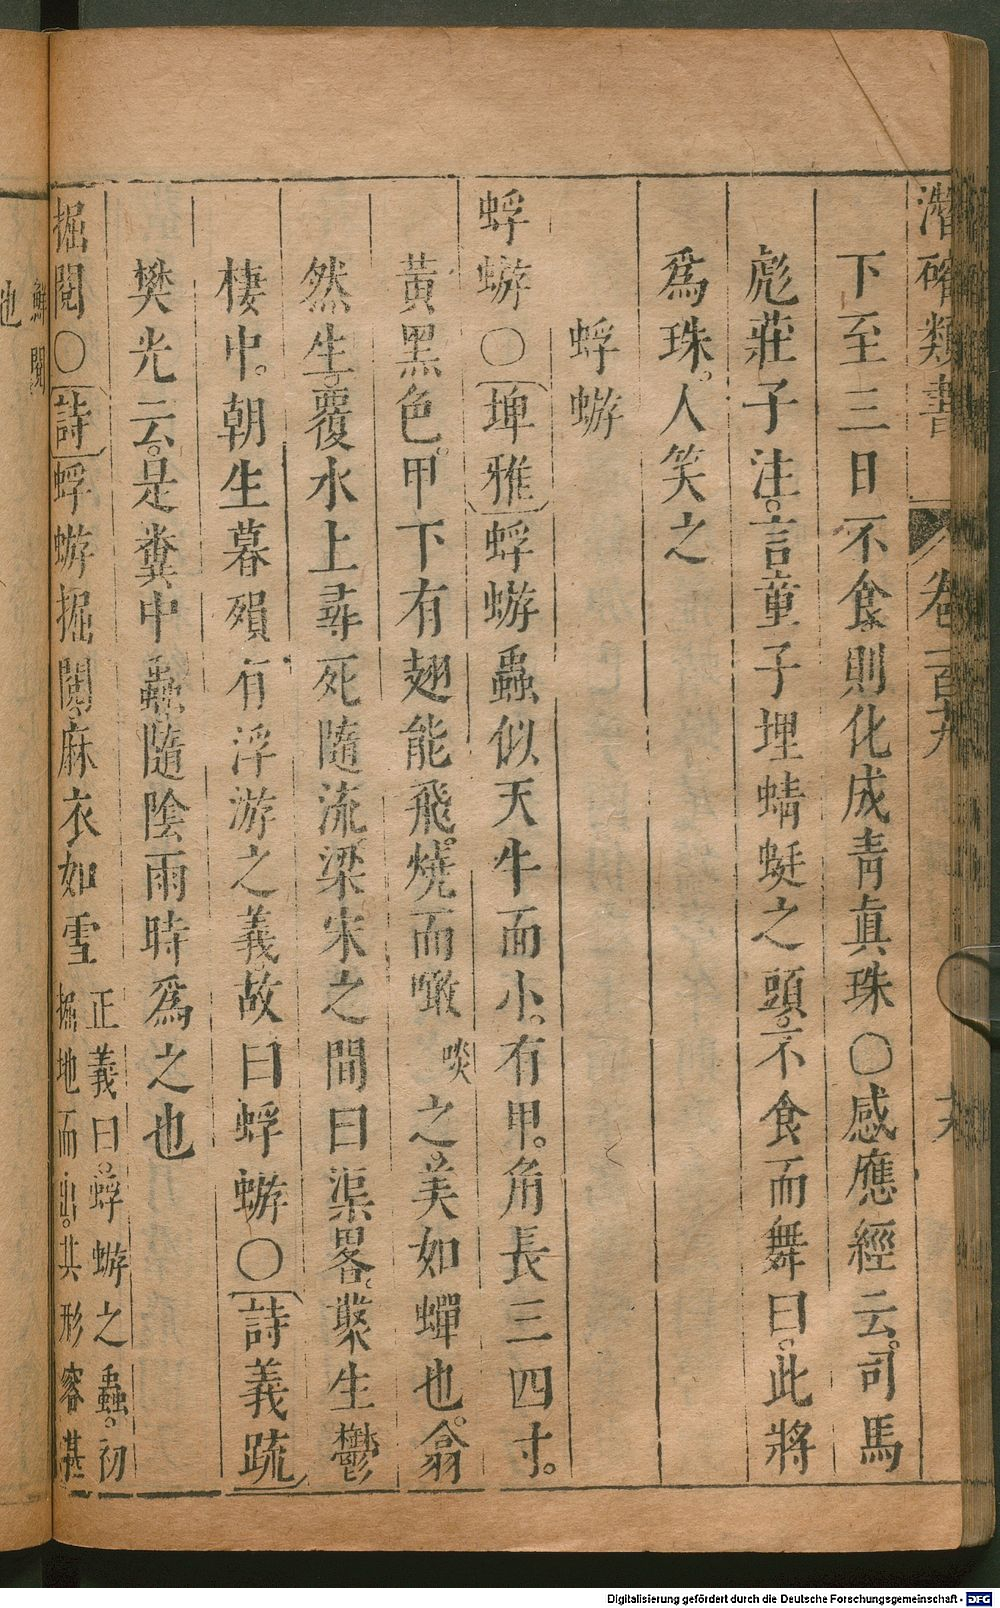 潛確類書 卷一百
下至三日不食則化成青真珠〇感應經云司馬
彪莊子注言童子埋蜻蜓之頭不食而舞曰此將
爲珠人笑之
蜉蝣
蜉蝣〇埤雅蜉蝣蟲似天牛而小有甲角長三四寸
黃黑色甲下有翅能飛燒而噉啖之美如蟬也翕
然生覆水上尋死隨流梁宋之間曰渠畧叢生鬱
棲中朝生暮殞有浮游之義故曰蜉蝣〇詩義疏
樊光云是糞中蟲隨陰雨時爲之也
掘閱〇詩蜉蝣掘閱麻衣如雪正義曰蜉蝣之蟲初
掘地而出其形容甚
鮮閱
也
Digitalisierung gefördert durch die Deutsche Forschungsgemeinschaft - DFG